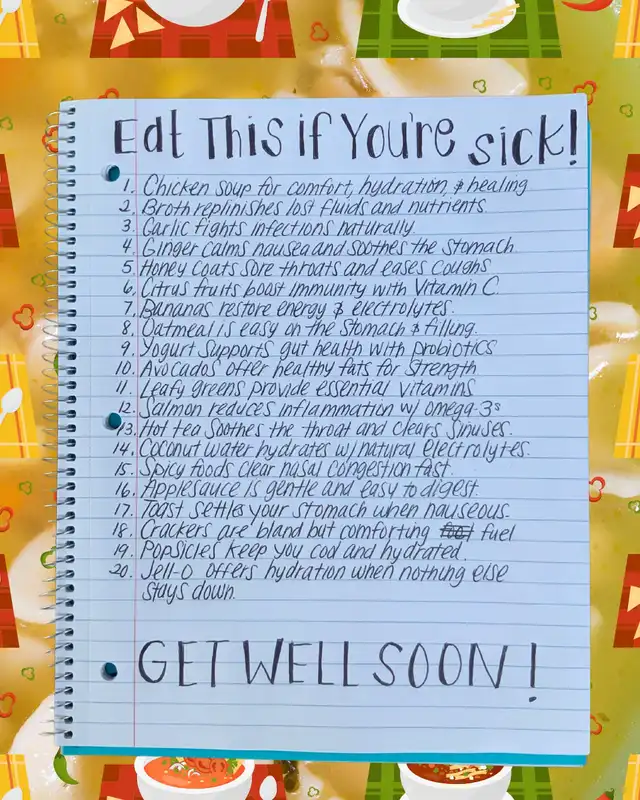 Eat This if You're sick!
1. Chicken soup for comfort, hydration, & healing
2. Broth replinishes lost fluids and nutrients
3. Garlic fights infections naturally
4. Ginger calms nausea and soothes the stomach
5. Honey coats sore throats and eases coughs
6. Citrus fruits boost immunity with Vitamin C.
7. Bananas restore energy & electrolytes.
8. Oatmeal is easy on the stomach & filling.
9. Yogurt supports gut health with probiotics
10. Avocados offer healthy fats for strength
11. Leafy greens provide essential vitamins
12. Salmon reduces inflammation w/ omega-3s
13. Hot tea soothes the throat and clears sinuses.
14. Coconut water hydrates w/ natural electrolytes.
15. Spicy foods clear nasal congestion fast.
16. Applesauce is gentle and easy to digest.
17. Toast settles your stomach when nauseous.
18. Crackers are bland but comforting fuel
19. Popsicles keep you cool and hydrated.
20. Jell-O offers hydration when nothing else
stays down.
GET WELL SOON!